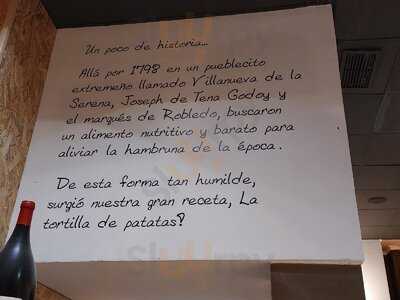 Un poco de historia...
Allá por 1798 en un pueblecito
extremeño llamado Villanueva de la
Serena, Joseph de Tena Godoy y
el marqués de Robledo, buscaron
un alimento nutritivo y barato para
aliviar la hambruna de la época.
De esta forma tan humilde,
surgió nuestra gran receta, La
tortilla de patatas?